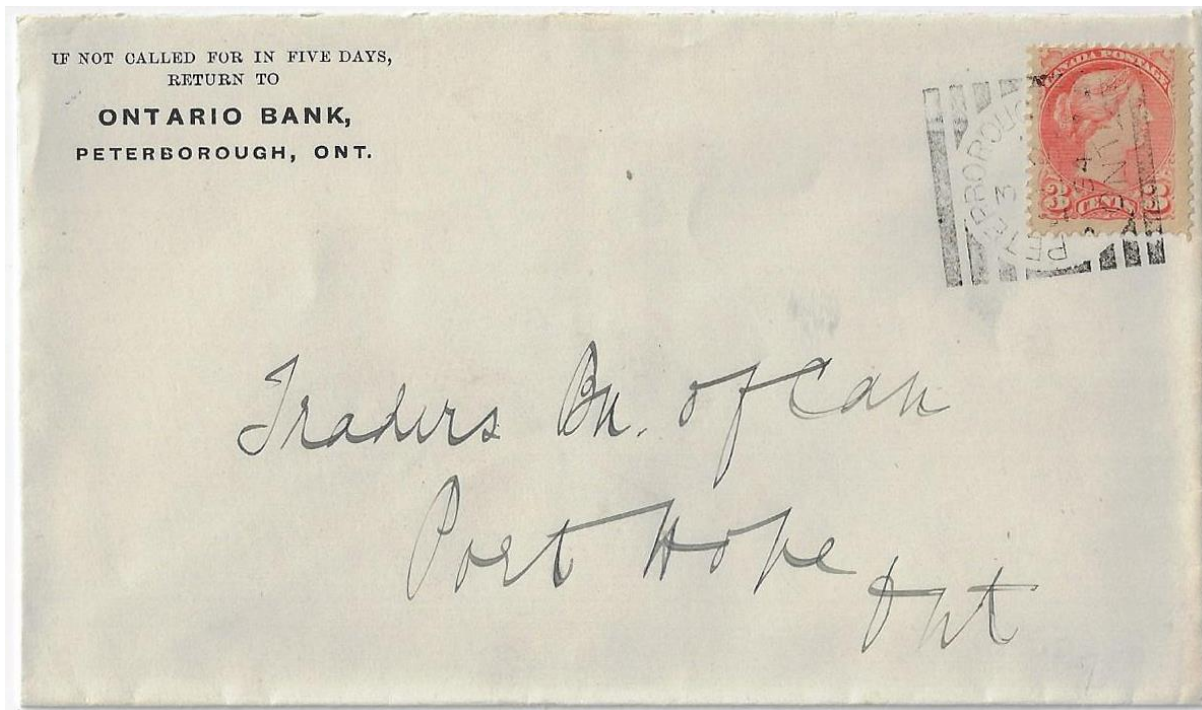 IF NOT CALLED FOR IN FIVE DAYS,
RETURN TO
ONTARIO BANK,
PETERBOROUGH, ONT.
CANADA POSTAGE
3 CENTS 3
PETERBOROUGH
3
94
Traders Bn. of Can
Port Hope
Ont